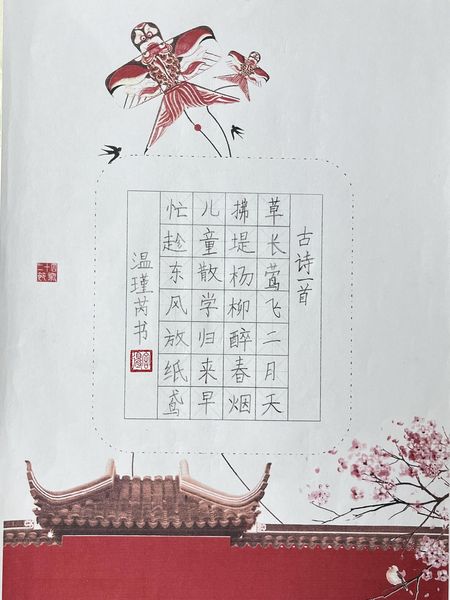 古诗一首
草长莺飞二月天
拂堤杨柳醉春烟
儿童散学归来早
忙趁东风放纸鸢
温瑾芮书